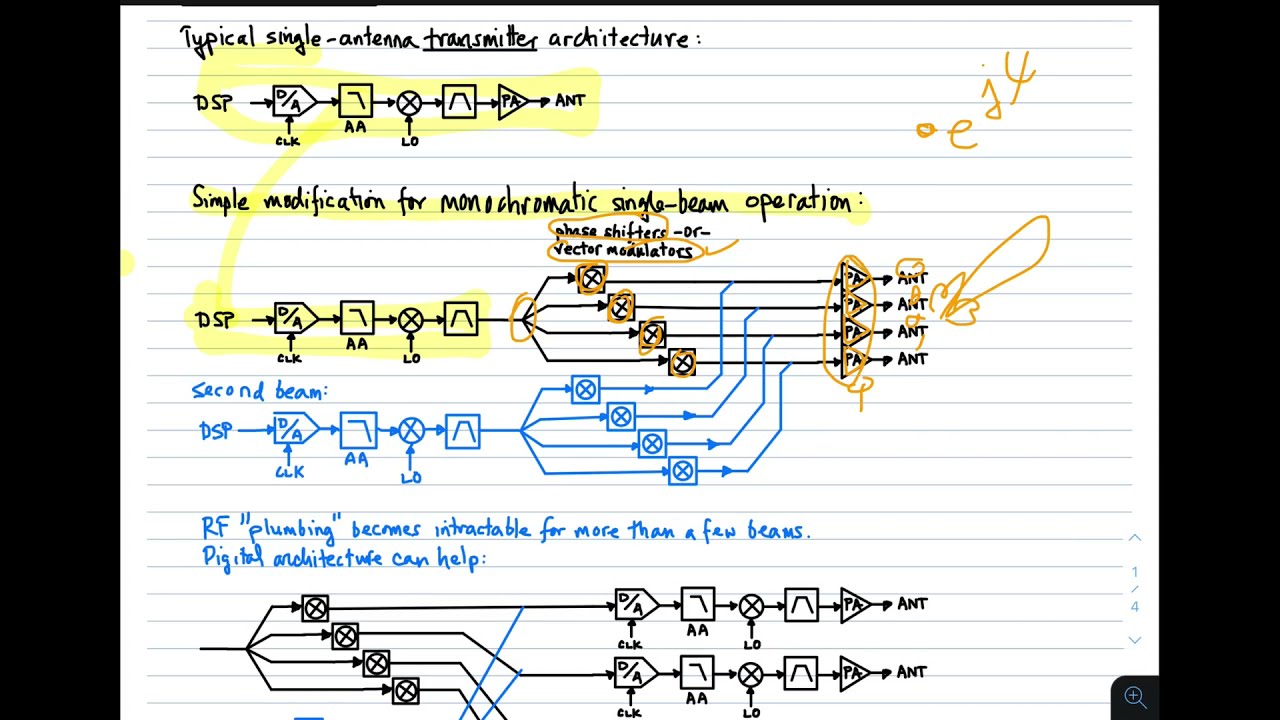 Typical single-antenna transmitter architecture:
e^jψ
DSP D/A PA ANT
CLK AA LO
Simple modification for monochromatic single-beam operation:
phase shifters -or-
vector modulators
PA ANT
PA ANT
DSP D/A PA ANT
CLK AA LO PA ANT
second beam:
DSP D/A
CLK AA LO
RF "plumbing" becomes intractable for more than a few beams.
Digital architecture can help:
1
/
4
D/A PA ANT
CLK AA LO
D/A PA ANT
CLK AA LO